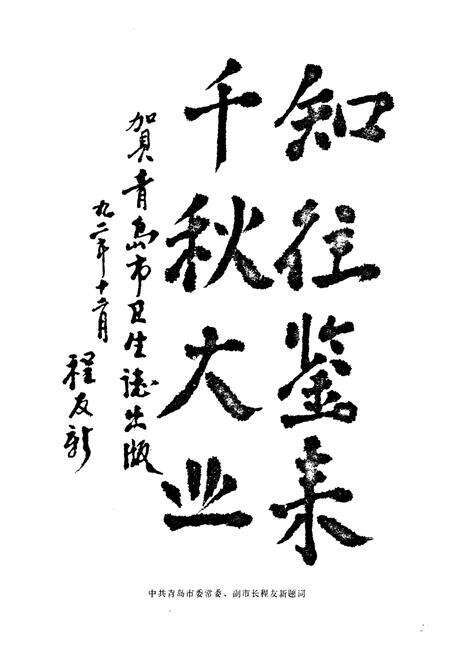 知往鉴来
千秋大业
贺青岛市卫生志出版
九二年十二月
程友新
中共青岛市委常委、副市长程友新题词